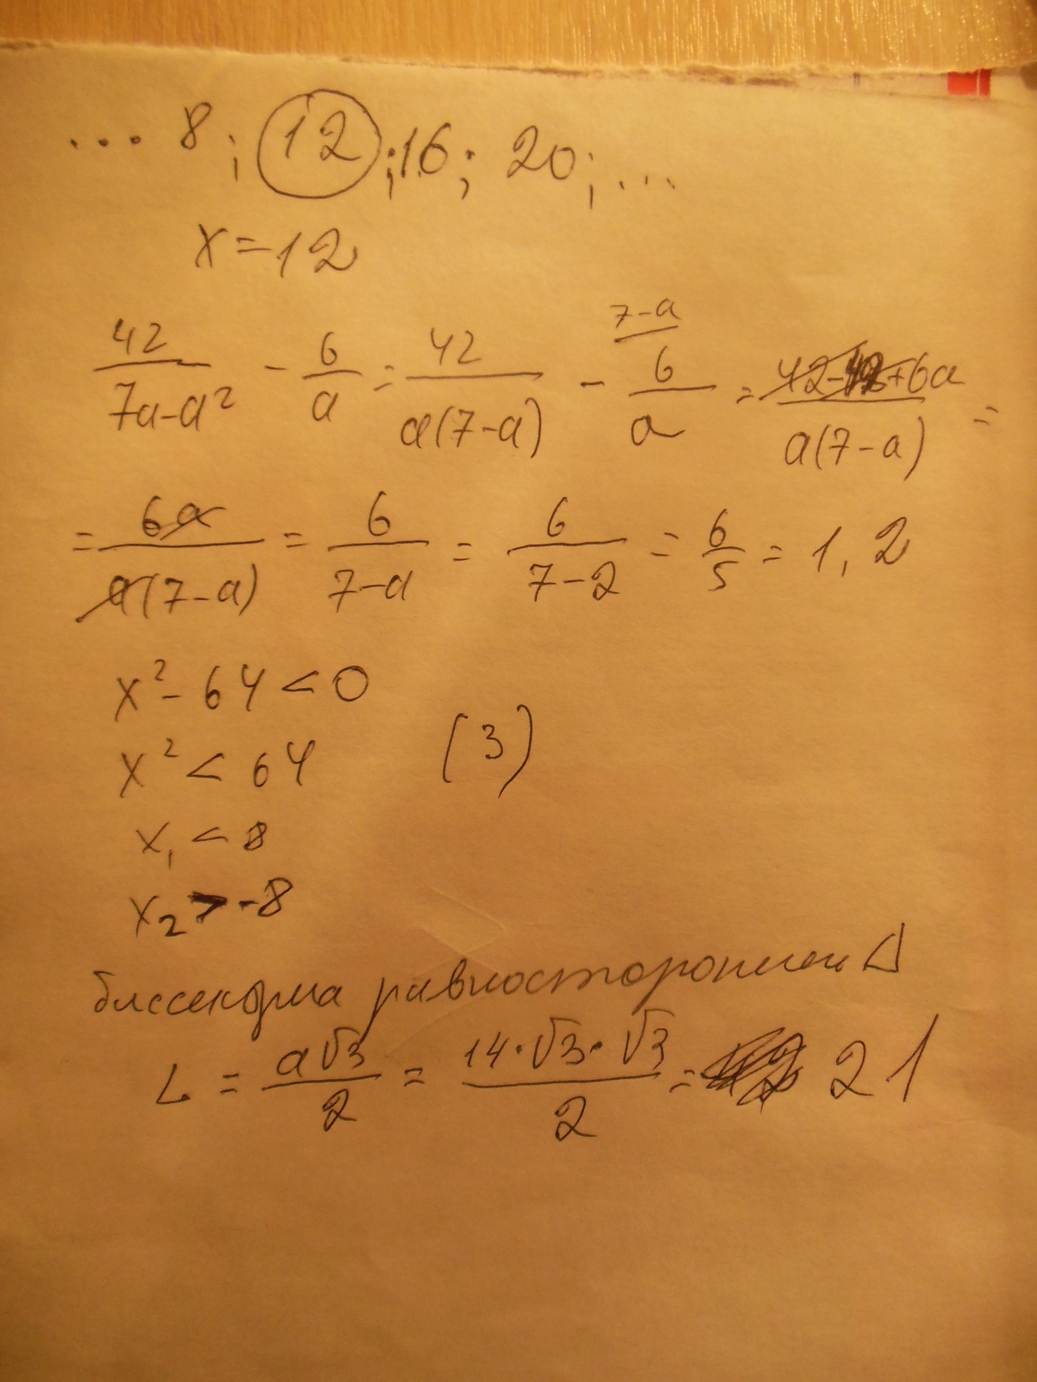 ... 8; 12; 16; 20; ...
x=12
42/(7a-a²) - 6/a = 42/(a(7-a)) - 6/a (7-a) = (42-42+6a)/(a(7-a)) =
= 6a/(a(7-a)) = 6/(7-a) = 6/(7-2) = 6/5 = 1,2
x²-64<0
x²<64 (3)
x₁<8
x₂>-8
биссектриса равносторонней △
L = a√3/2 = 14·√3·√3/2 = 21